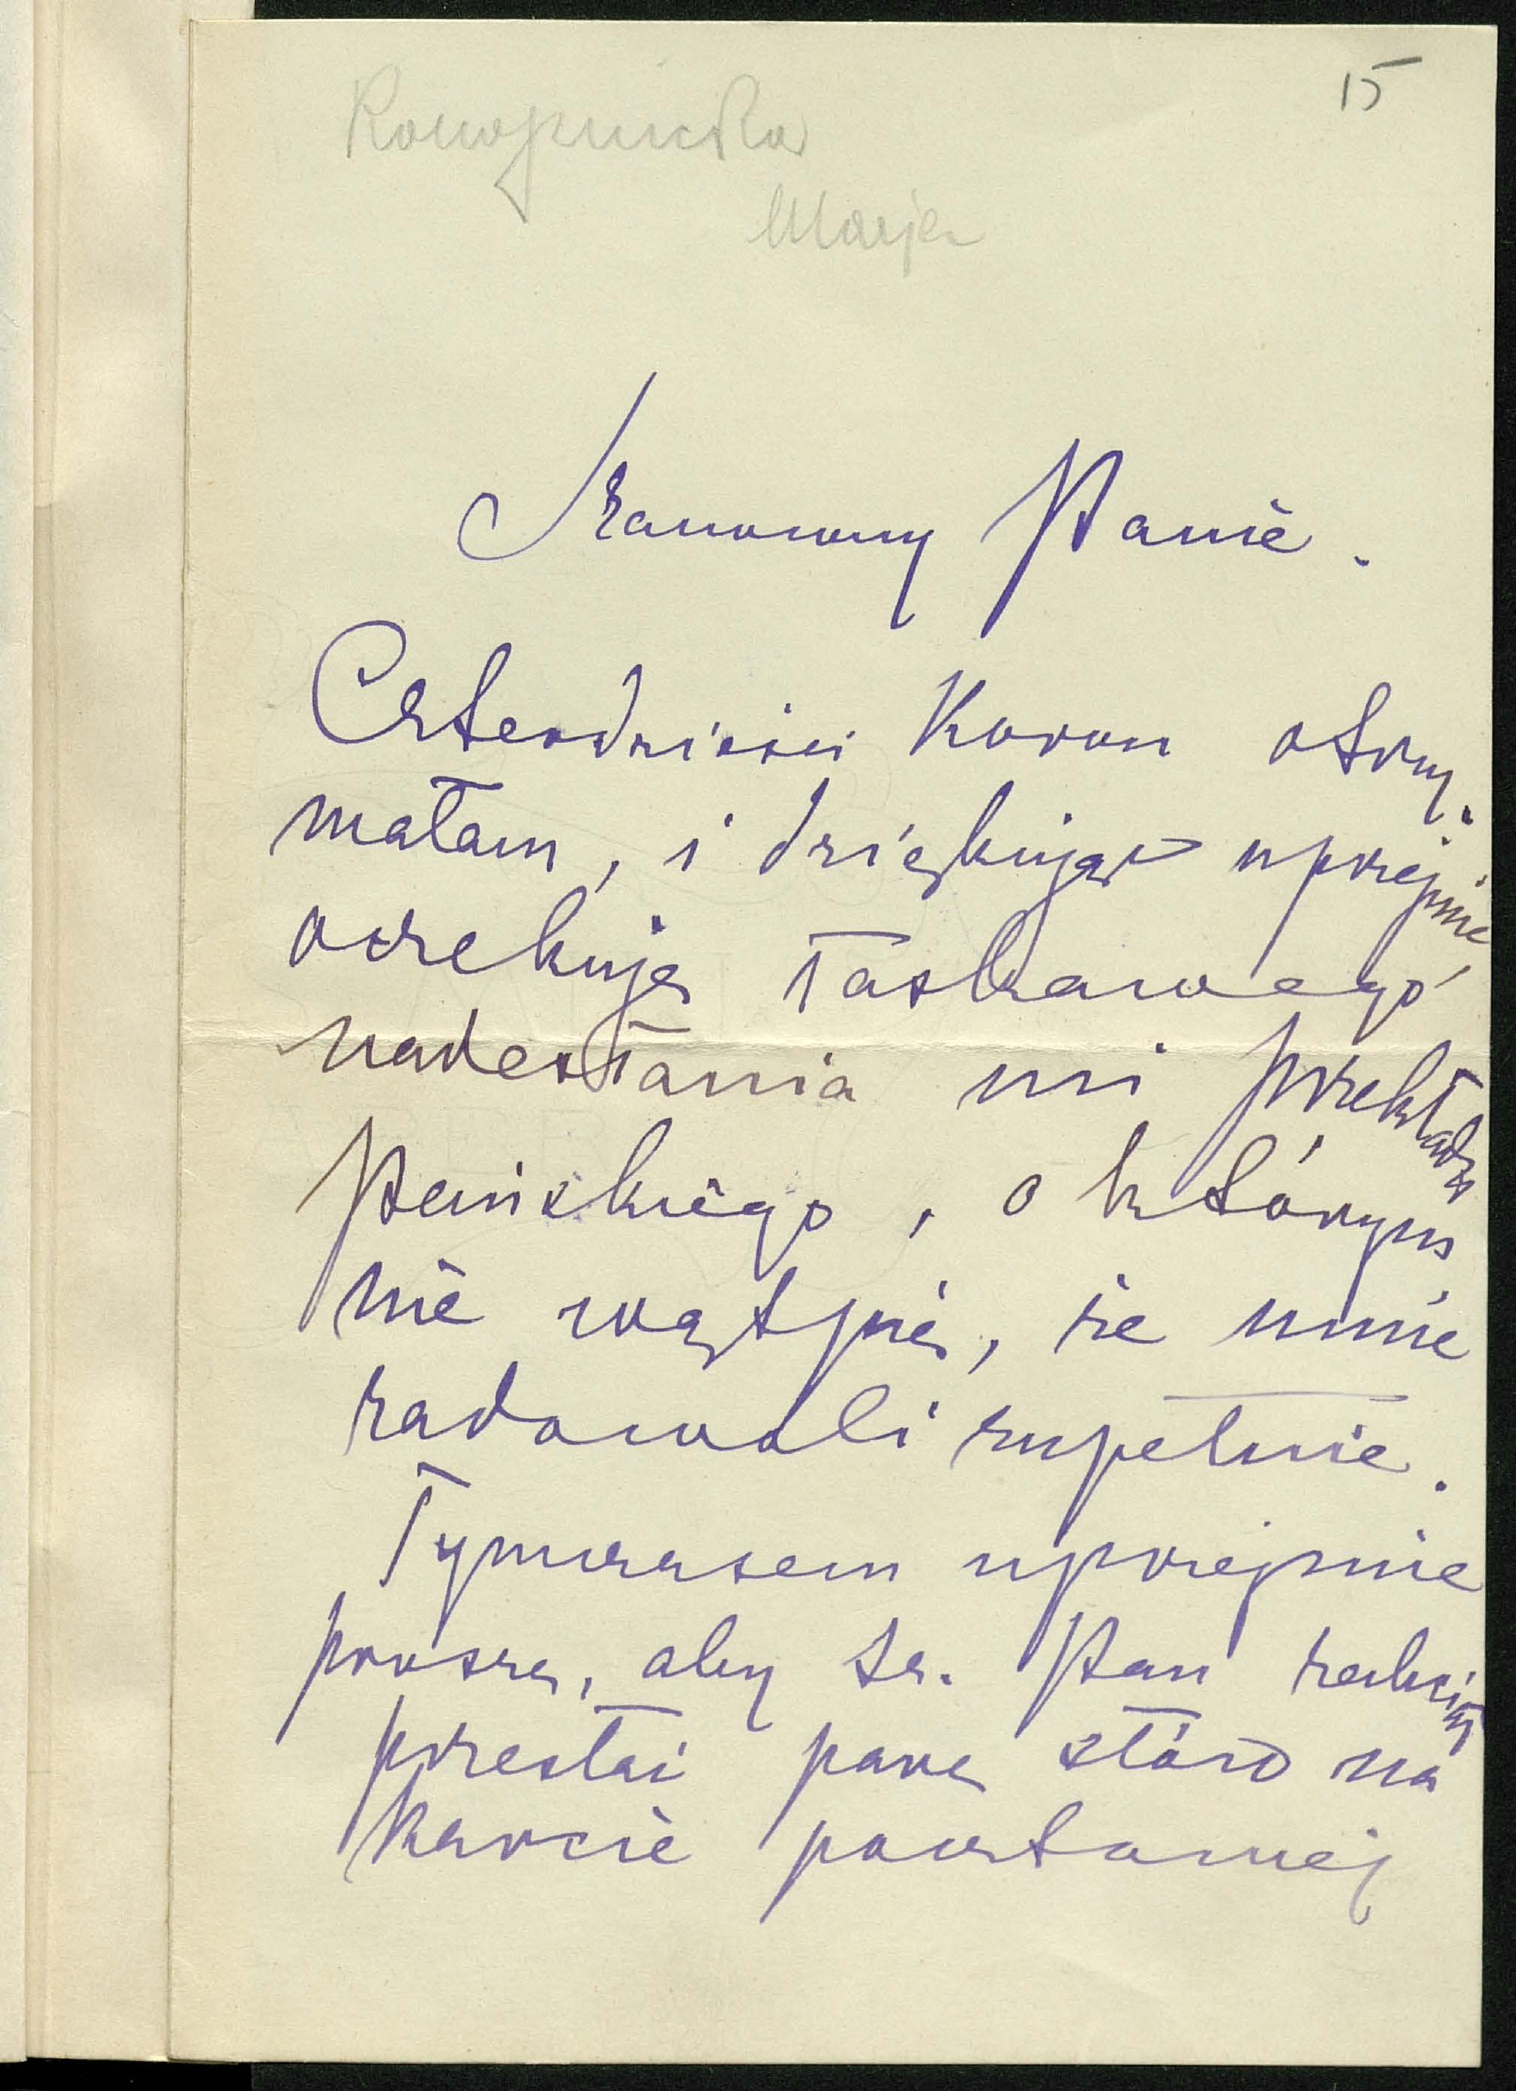 15
Konopnicka
Marja
Szanowny Panie.
Czterdzieści Koron otrzy-
małam, i dziękuję uprzejmie,
oczekuję łaskawego
nadesłania mi przekładu
Pańskiego, o którym
nie wątpię, że mnie
zadowoli zupełnie.
Tymczasem uprzejmie
proszę, aby Sz. Pan zechciał
przesłać parę słów na
karcie pocztowej